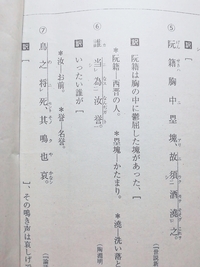 ⑤ 阮籍胸中塁塊、故須酒澆之。
〔世説新
訳 阮籍は胸の中に鬱屈した塊があった、[
*阮籍―西晋の人。 *塁塊―かたまり。 *澆―洗い落と
⑥ 誰当為汝誉。
〔陶淵明
訳 いったい誰が[
*汝―お前。 *誉―名誉。
⑦ 鳥之将死、其鳴也哀。
〔論
訳 ]、その鳴き声は哀しげ